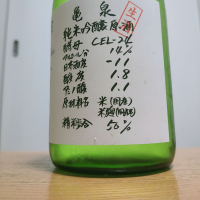 亀泉
生
純米吟醸原酒
酵母 CEL-24
アルコール分 14%
日本酒度 -11
酸度 1.8
アミノ酸 1.1
原材料名 米(国産)
米麹(国産米)
精米歩合 50%